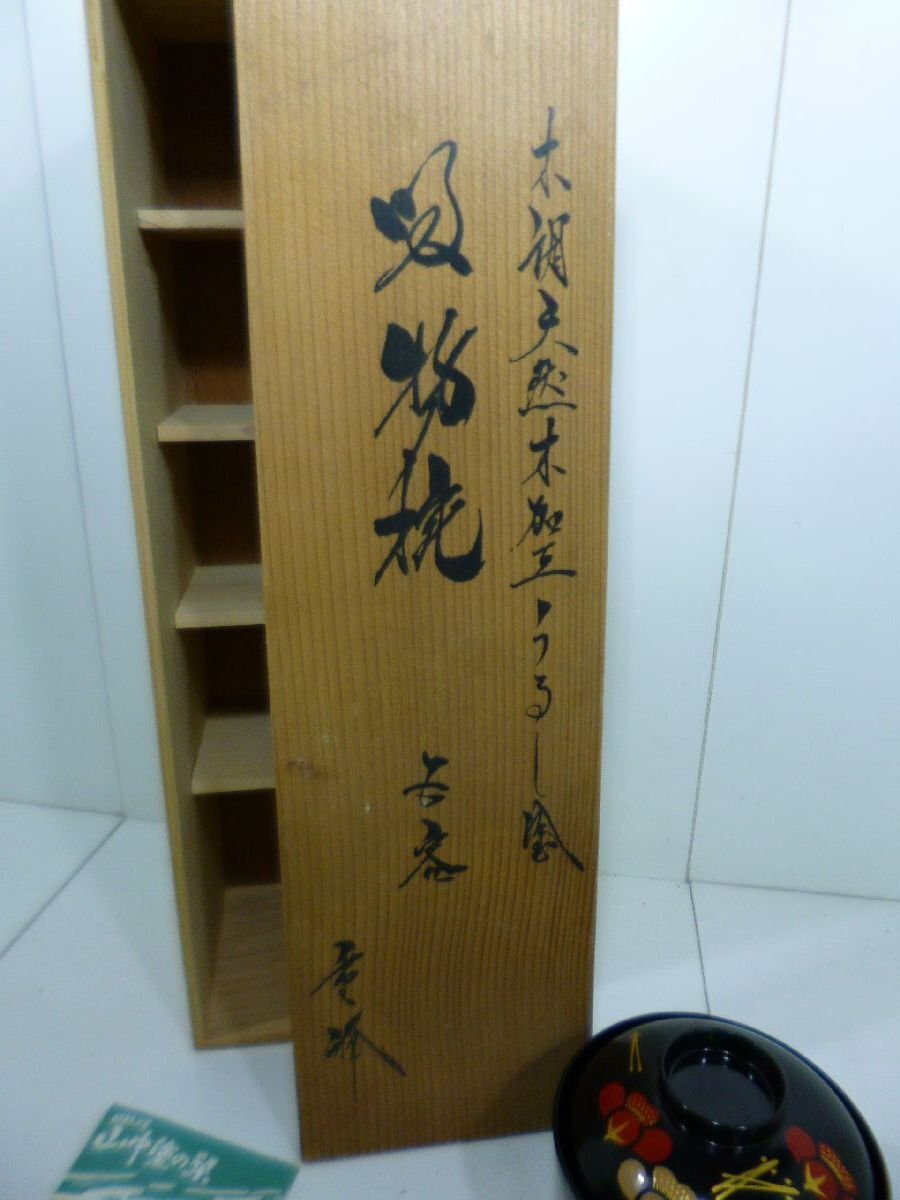 木製天然木加工、うるし塗
吸物椀
五客
山中塗の栞